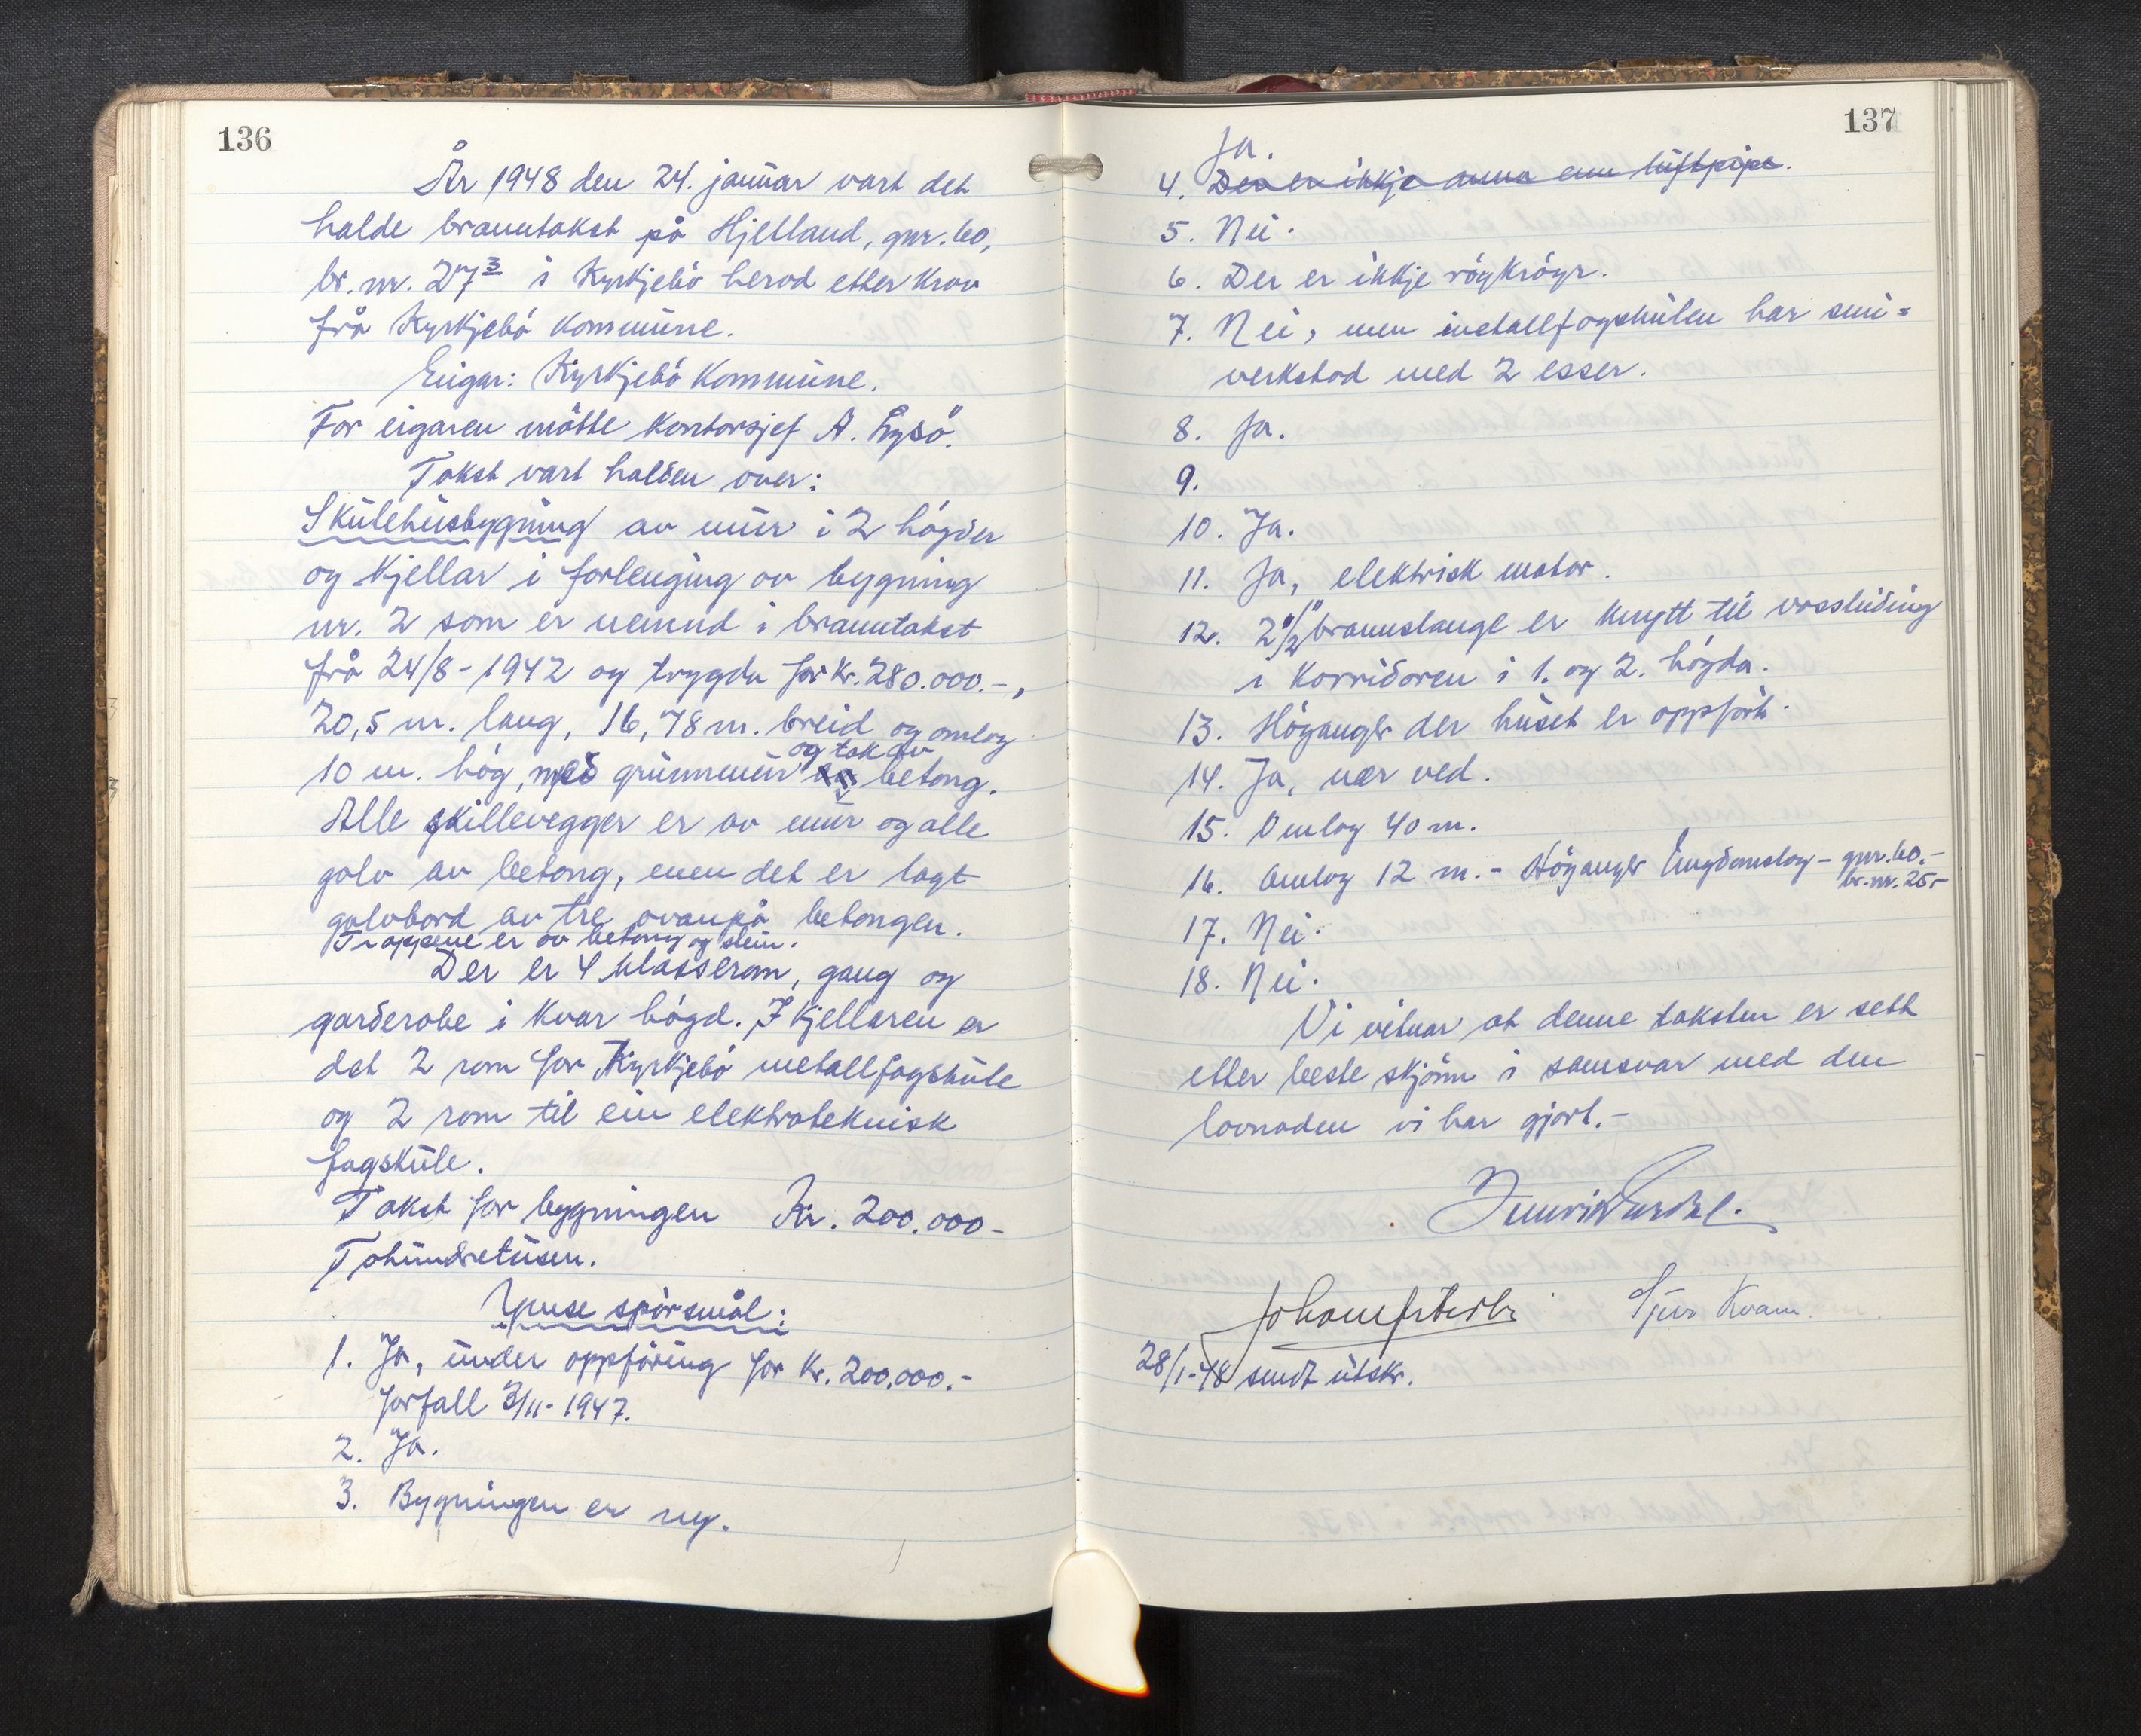 136
År 1948 den 24. januar vart det
halde branntakst på Hjetland, gnr. 60,
br. nr. 27³ i Kyrkjebö herad etter krav
frå Kyrkjebö kommune.
Eigar: Kyrkjebö kommune.
For eigaren mötte kontorsjef A. Lysö.
Takst vart halden over:
Skulehusbygning av mur i 2 högder
og kjellar i forlenging av bygning
nr. 2 som er nemnd i branntakst
frå 24/8-1942 og trygda for kr. 280.000.-,
20,5 m. lang, 16,78 m. breid og omlag
og tak av
10 m. hög, med grunnmur betong.
Alle skillevegger er av mur og alle
golv av betong, men det er lagt
golvbord av tre ovanpå betongen.
Trappene er av betong og stein.
Der er 4 klasserom, gang og
garderobe i kvar högd. I kjellaren er
det 2 rom for Kyrkjebö metallfagskule
og 2 rom til ein elektroteknisk
fagskule.
Takst for bygningen Kr. 200.000-
Tohundretusen.
Ymse spörsmål:
1. Ja, under oppföring for kr. 200.000.-
forfall 3/11-1947.
2. Ja.
3. Bygningen er ny.
137
Ja.
4. Der er ikkje anna enn luftpipe.
5. Nei.
6. Der er ikkje röykröyr.
7. Nei, men metallfagskulen har smi=
verkstad med 2 esser.
8. Ja.
9.
10. Ja.
11. Ja, elektrisk motor.
12. 2 1/2" brannslange er knytt til vassleiding
i korridoren i 1. og 2. högda.
13. Höyanger der huset er oppfört.
14. Ja, nær ved.
15. Omlag 40 m.
16. Omlag 12 m. - Höyanger Ungdomslag - gnr. 60.-
br. nr. 25.-
17. Nei.
18. Nei.
Vi vitnar at denne taksten er sett
etter beste skjönn i samsvar med den
lovnaden vi har gjort.-
Sjur Kvam.
28/1-48 sendt utskr.